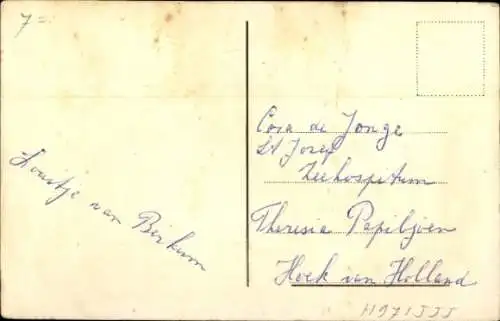 7=
Louitje van Birkum
Cora de Jonge
St Josef
Zeehospitum
Theresia Papiljoen
Hoek van Holland
H971555